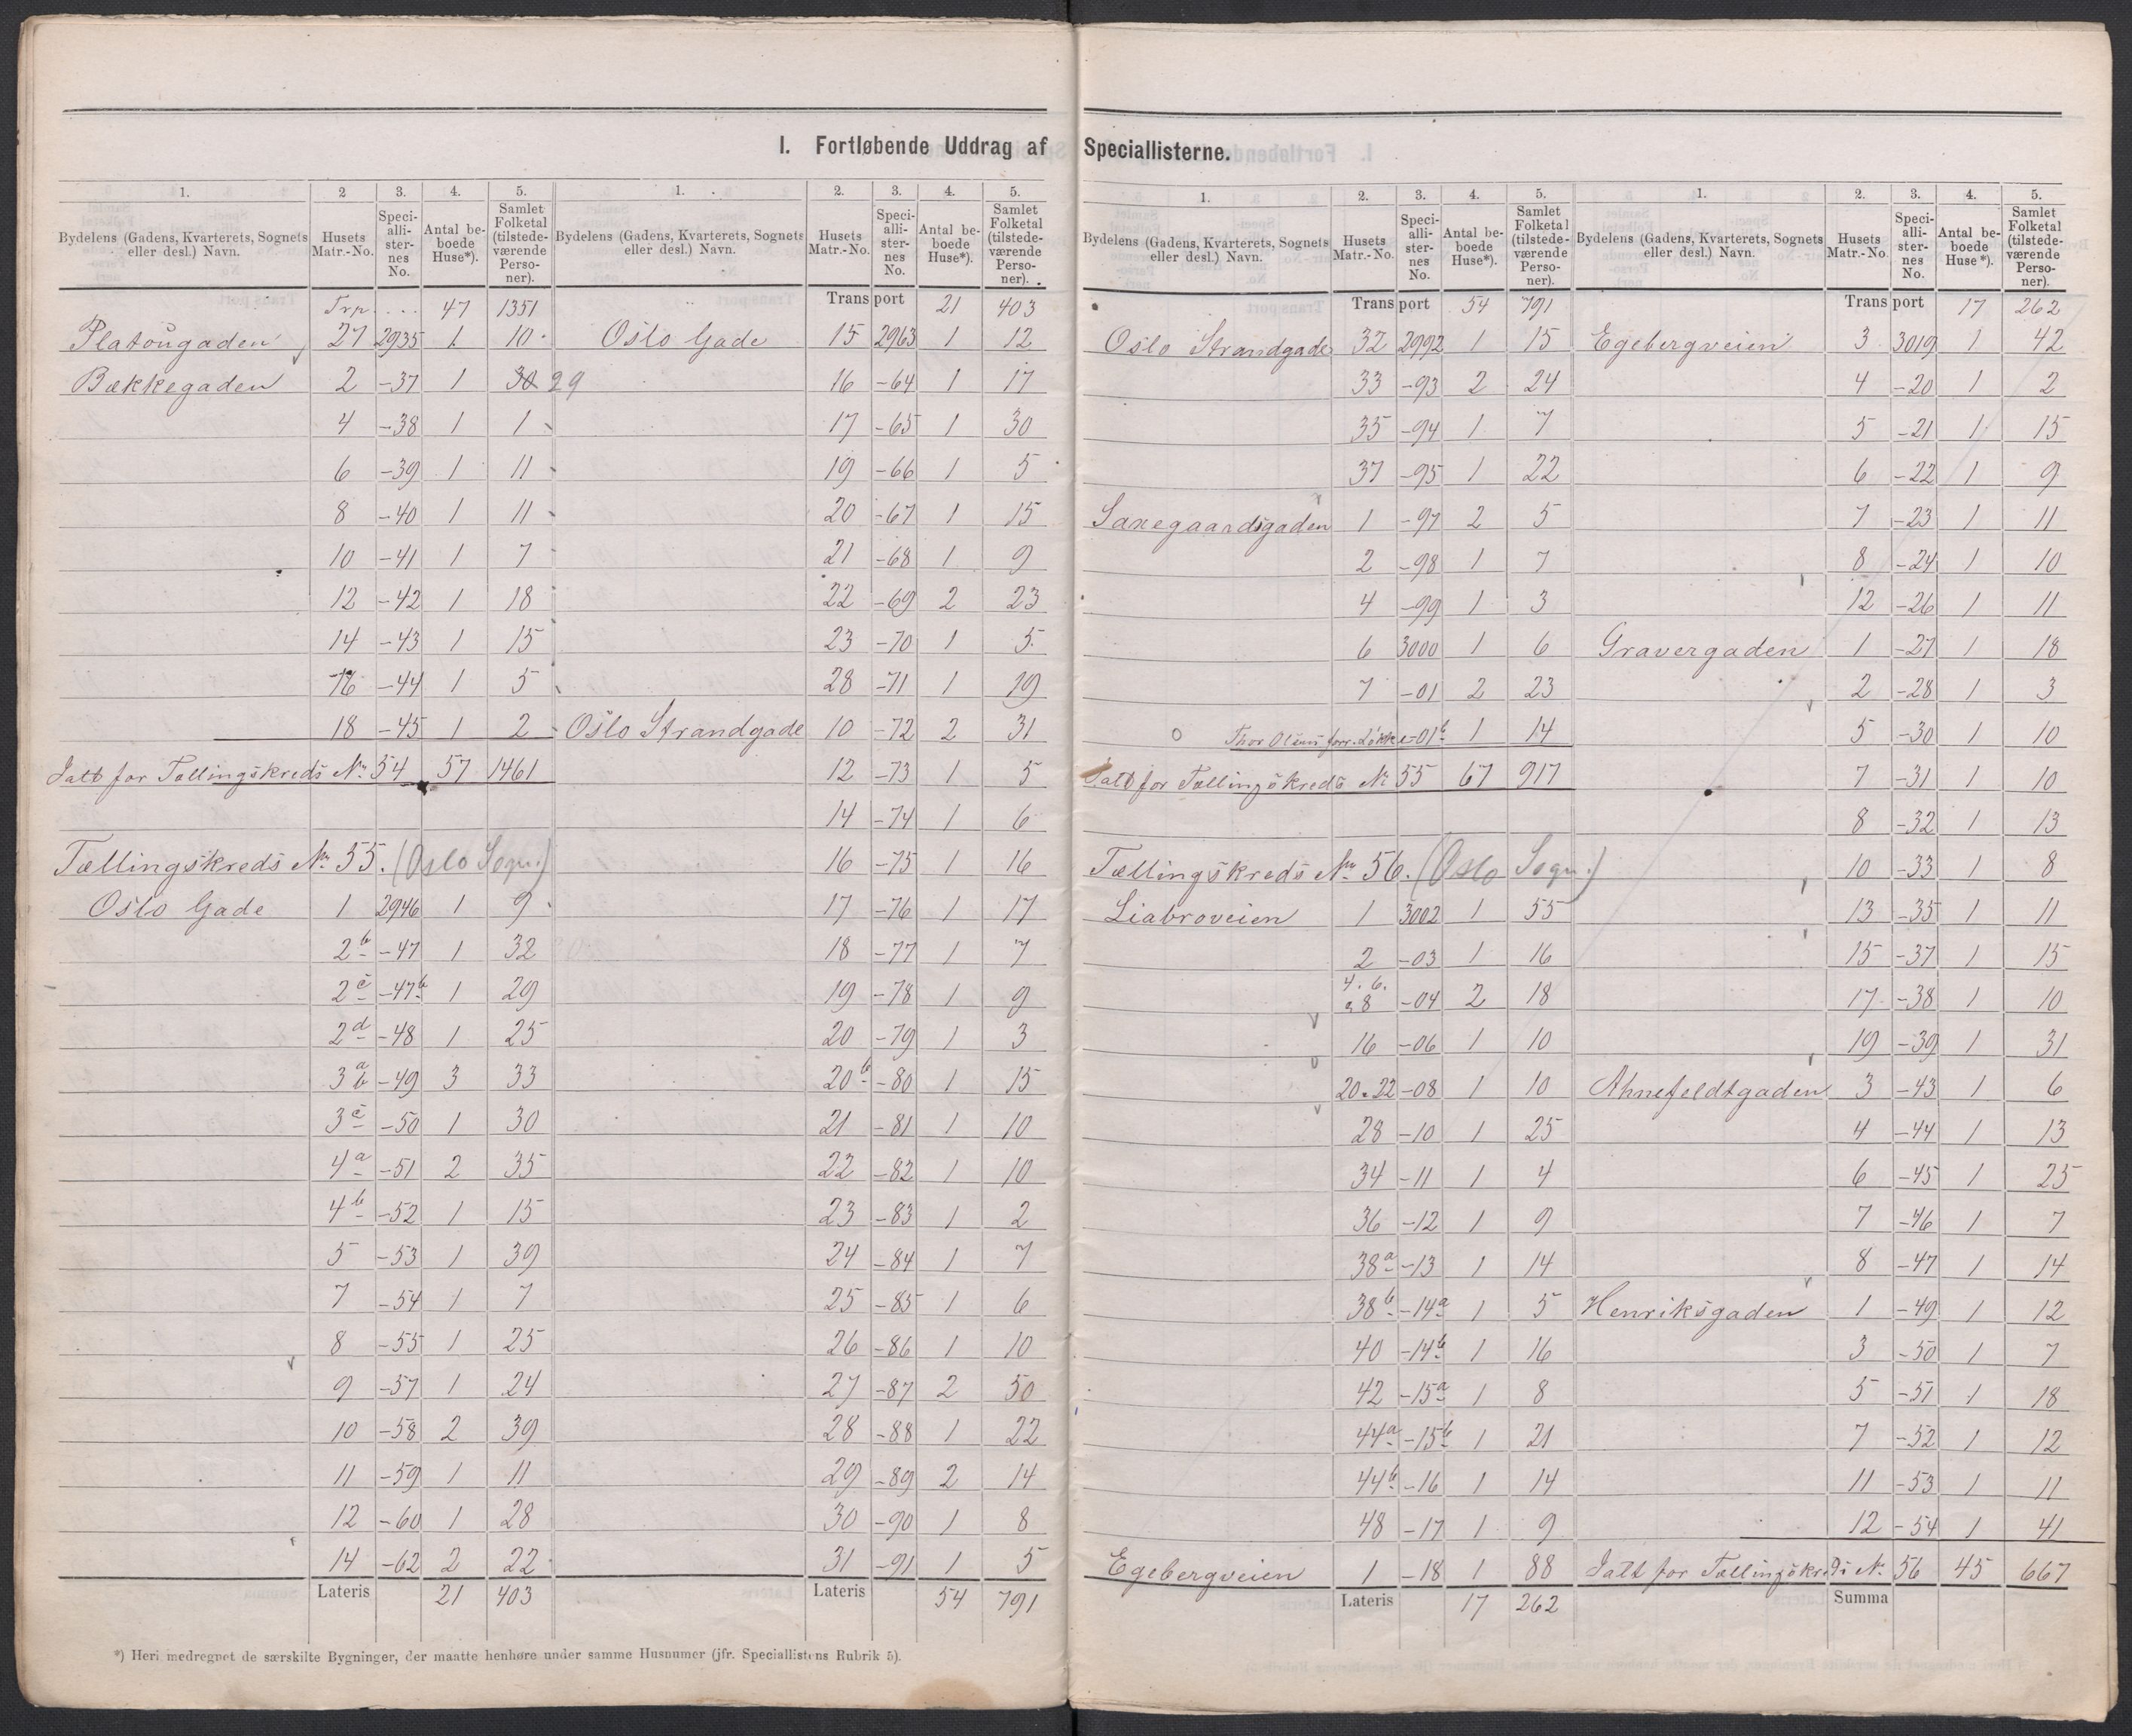 I. Fortløbende Uddrag af Speciallisterne.
1. 2 3. 4. 5.
Bydelens (Gadens, Kvarterets, Sognets eller desl.) Navn. Husets Matr.-No. Speciallisternes No. Antal beboede Huse*). Samlet Folketal (tilstedeværende Personer).
Trp. ... 47 1351
Platöugaden 27 2935 1 10
Bækkegaden 2 -37 1 30 29
4 -38 1 1
6 -39 1 11
8 -40 1 11
10 -41 1 7
12 -42 1 18
14 -43 1 15
16 -44 1 5
18 -45 1 2
Ialt for Tællingskreds No. 54 57 1461
Tællingskreds No. 55. (Oslo Sogn.)
Oslo Gade 1 2946 1 9
2b -47 1 32
2c -47b 1 29
2d -48 1 25
3a b -49 3 33
3c -50 1 30
4a -51 2 35
4b -52 1 15
5 -53 1 39
7 -54 1 7
8 -55 1 25
9 -57 1 24
10 -58 2 39
11 -59 1 11
12 -60 1 28
14 -62 2 22
Lateris 21 403
1. 2. 3. 4. 5.
Bydelens (Gadens, Kvarterets, Sognets eller desl.) Navn. Husets Matr.-No. Speciallisternes No. Antal beboede Huse*). Samlet Folketal (tilstedeværende Personer).
Transport 21 403
Oslo Gade 15 2963 1 12
16 -64 1 17
17 -65 1 30
19 -66 1 5
20 -67 1 15
21 -68 1 9
22 -69 2 23
23 -70 1 5
28 -71 1 19
Oslo Strandgade 10 -72 2 31
12 -73 1 5
14 -74 1 6
16 -75 1 16
17 -76 1 17
18 -77 1 7
19 -78 1 9
20 -79 1 3
20b -80 1 15
21 -81 1 10
22 -82 1 10
23 -83 1 2
24 -84 1 7
25 -85 1 6
26 -86 1 10
27 -87 2 50
28 -88 1 22
29 -89 2 14
30 -90 1 8
31 -91 1 5
Lateris 54 791
*) Heri medregnet de særskilte Bygninger, der maatte henhøre under samme Husnumer (jfr. Speciallistens Rubrik 5).
1. 2. 3. 4. 5.
Bydelens (Gadens, Kvarterets, Sognets eller desl.) Navn. Husets Matr.-No. Speciallisternes No. Antal beboede Huse*). Samlet Folketal (tilstedeværende Personer).
Transport 54 791
Oslo Strandgade 32 2992 1 15
33 -93 2 24
35 -94 1 7
37 -95 1 22
Saxegaardsgaden 1 -97 2 5
2 -98 1 7
4 -99 1 3
6 3000 1 6
7 -01 2 23
Thor Olsens forr. Løkke -01b 1 14
Ialt for Tællingskreds No. 55 67 917
Tællingskreds No. 56. (Oslo Sogn.)
Liabroveien 1 3002 1 55
2 -03 1 16
4. 6. a 8 -04 2 18
16 -06 1 10
20.22 -08 1 10
28 -10 1 25
34 -11 1 4
36 -12 1 9
38a -13 1 14
38b -14a 1 5
40 -14b 1 16
42 -15a 1 8
44a -15b 1 21
44b -16 1 14
48 -17 1 9
Egebergveien 1 -18 1 88
Lateris 17 262
1. 2. 3. 4. 5.
Bydelens (Gadens, Kvarterets, Sognets eller desl.) Navn. Husets Matr.-No. Speciallisternes No. Antal beboede Huse*). Samlet Folketal (tilstedeværende Personer).
Transport 17 262
Egebergveien 3 3019 1 42
4 -20 1 2
5 -21 1 15
6 -22 1 9
7 -23 1 11
8 -24 1 10
12 -26 1 11
Gravergaden 1 -27 1 18
2 -28 1 3
5 -30 1 10
7 -31 1 10
8 -32 1 13
10 -33 1 8
13 -35 1 11
15 -37 1 15
17 -38 1 10
19 -39 1 31
Ahnefeldtgaden 3 -43 1 6
4 -44 1 13
6 -45 1 25
7 -46 1 7
8 -47 1 14
Henriksgaden 1 -49 1 12
3 -50 1 7
5 -51 1 18
7 -52 1 12
11 -53 1 11
12 -54 1 41
Ialt for Tællingskreds No. 56 45 667
Summa